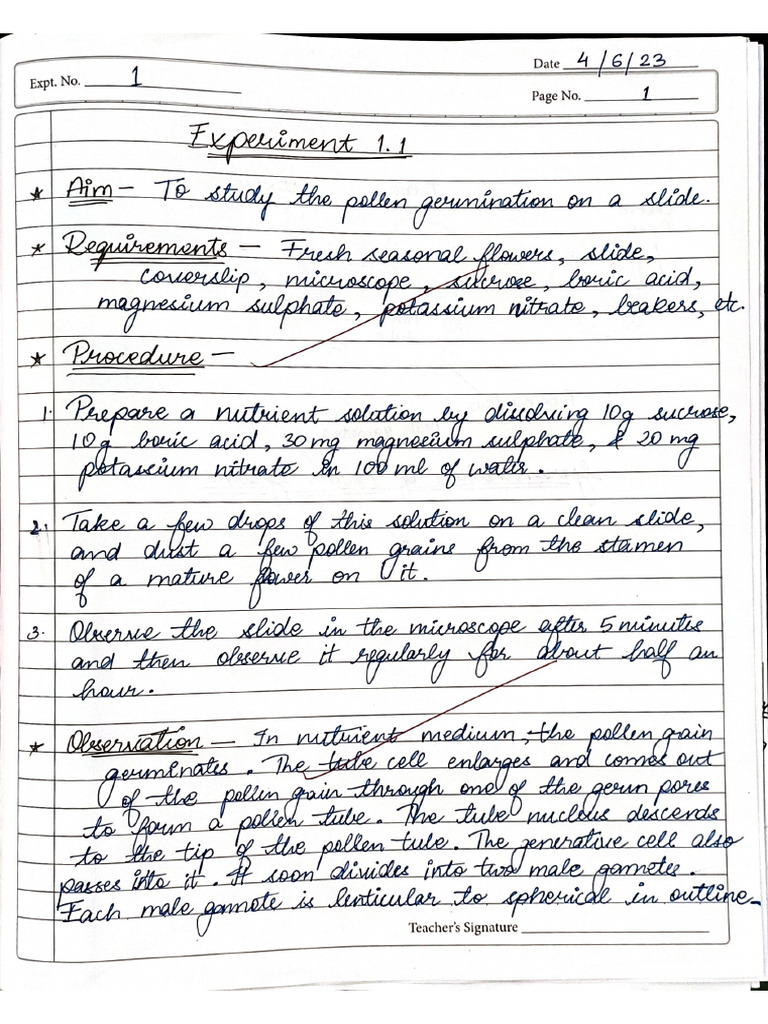 Date 4/6/23
Expt. No. 1
Page No. 1
Experiment 1.1
* Aim - To study the pollen germination on a slide.
* Requirements - Fresh seasonal flowers, slide,
coverslip, microscope, sucrose, boric acid,
magnesium sulphate, potassium nitrate, beakers, etc.
* Procedure -
1. Prepare a nutrient solution by dissolving 10g sucrose,
10g boric acid, 30 mg magnesium sulphate, & 20 mg
potassium nitrate in 100 ml of water.
2. Take a few drops of this solution on a clean slide,
and dust a few pollen grains from the stamen
of a mature flower on it.
3. Observe the slide in the microscope after 5 minutes
and then observe it regularly for about half an
hour.
* Observation - In nutrient medium, the pollen grain
germinates. The tube cell enlarges and comes out
of the pollen grain through one of the germ pores
to form a pollen tube. The tube nucleus descends
to the tip of the pollen tube. The generative cell also
passes into it. It soon divides into two male gametes.
Each male gamote is lenticular to spherical in outline.
Teacher's Signature